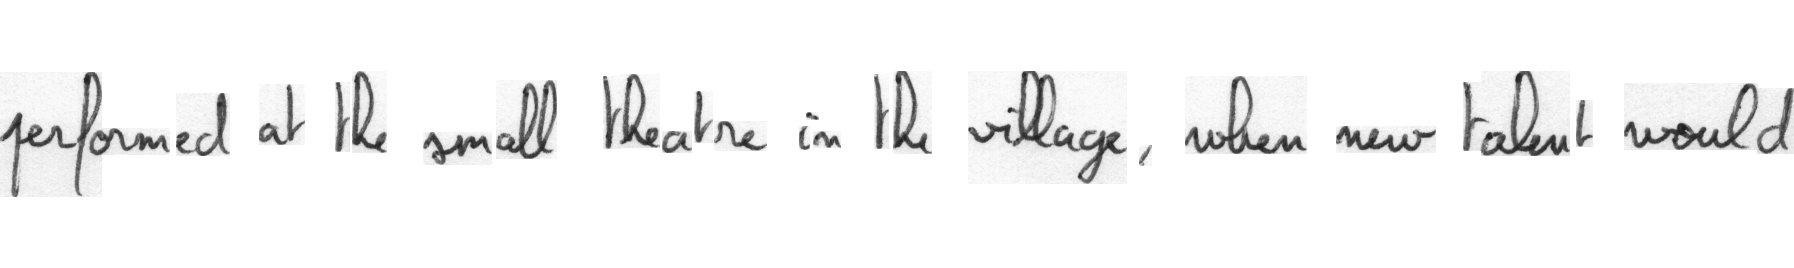 performed at the small theatre in the village, when new talent would